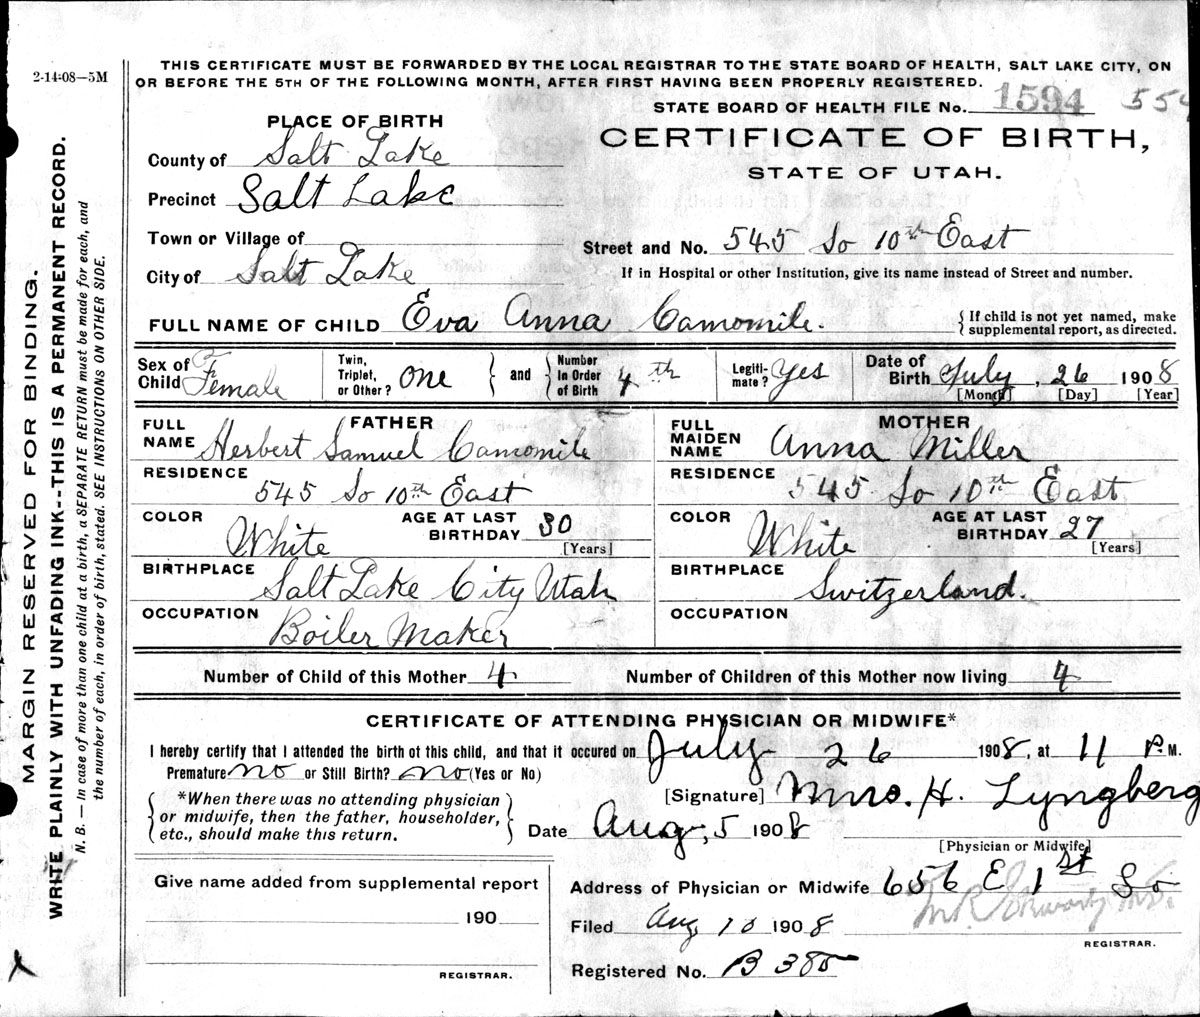 2-14-08—5M
THIS CERTIFICATE MUST BE FORWARDED BY THE LOCAL REGISTRAR TO THE STATE BOARD OF HEALTH, SALT LAKE CITY, ON
OR BEFORE THE 5TH OF THE FOLLOWING MONTH, AFTER FIRST HAVING BEEN PROPERLY REGISTERED.
STATE BOARD OF HEALTH FILE No. 1594 554
PLACE OF BIRTH
CERTIFICATE OF BIRTH,
STATE OF UTAH.
County of Salt Lake
Precinct Salt Lake
Town or Village of
Street and No. 545 So 10th East
City of Salt Lake
If in Hospital or other Institution, give its name instead of Street and number.
FULL NAME OF CHILD Eva Anna Camomile. { If child is not yet named, make
supplemental report, as directed.
Sex of Child Female
Twin, Triplet, or Other? one } and { Number In Order of Birth 4th
Legiti-mate? Yes
Date of Birth July, 26 1908
[Month] [Day] [Year]
FATHER
FULL NAME Herbert Samuel Camomile
RESIDENCE 545 So 10th East
COLOR White AGE AT LAST BIRTHDAY 30 [Years]
BIRTHPLACE Salt Lake City Utah
OCCUPATION Boiler Maker
MOTHER
FULL MAIDEN NAME Anna Miller
RESIDENCE 545 So 10th East
COLOR White AGE AT LAST BIRTHDAY 27 [Years]
BIRTHPLACE Switzerland.
OCCUPATION
Number of Child of this Mother 4 Number of Children of this Mother now living 4
CERTIFICATE OF ATTENDING PHYSICIAN OR MIDWIFE*
I hereby certify that I attended the birth of this child, and that it occured on July 26 1908, at 11 P. M.
Premature no or Still Birth? no (Yes or No)
*When there was no attending physician
or midwife, then the father, householder,
etc., should make this return.
[Signature] Mrs. H. Lyngberg
Date Aug, 5 1908
[Physician or Midwife]
Give name added from supplemental report
190
REGISTRAR.
Address of Physician or Midwife 656 E 1st So
Filed Aug 10 1908
REGISTRAR.
Registered No. B 385
MARGIN RESERVED FOR BINDING.
WRITE PLAINLY WITH UNFADING INK--THIS IS A PERMANENT RECORD.
N. B. — In case of more than one child at a birth, a SEPARATE RETURN must be made for each, and
the number of each, in order of birth, stated. SEE INSTRUCTIONS ON OTHER SIDE.